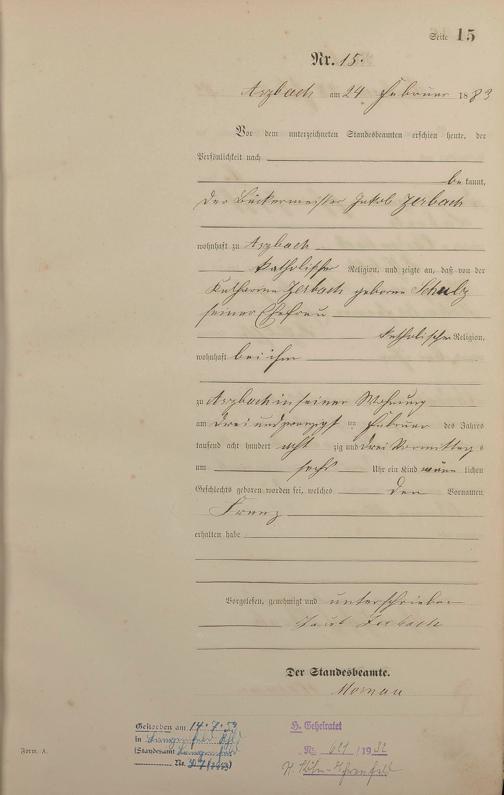 Seite 15
Nr. 15.
Aszbach am 24 Februar 1883
Vor dem unterzeichneten Standesbeamten erschien heute, der
Persönlichkeit nach
bekannt,
der Bäckermeister Jakob Zerbach
wohnhaft zu Aszbach
katholischer Religion, und zeigte an, daß von der
Katharina Zerbach geborne Schulz
seiner Ehefrau
katholischer Religion,
wohnhaft bei ihm
zu Aszbach in seiner Wohnung
am drei und zwanzigsten Februar des Jahres
tausend acht hundert achtzig und drei Vormittags
um sechs Uhr ein Kind männlichen
Geschlechts geboren worden sei, welches den Vornamen
Franz
erhalten habe
Vorgelesen, genehmigt und unterschrieben
Jacob Zerbach
Der Standesbeamte.
Gestorben am 14.7.53
in
(Standesamt
Nr.
H. Geheiratet
Nr. /19
Form. A.